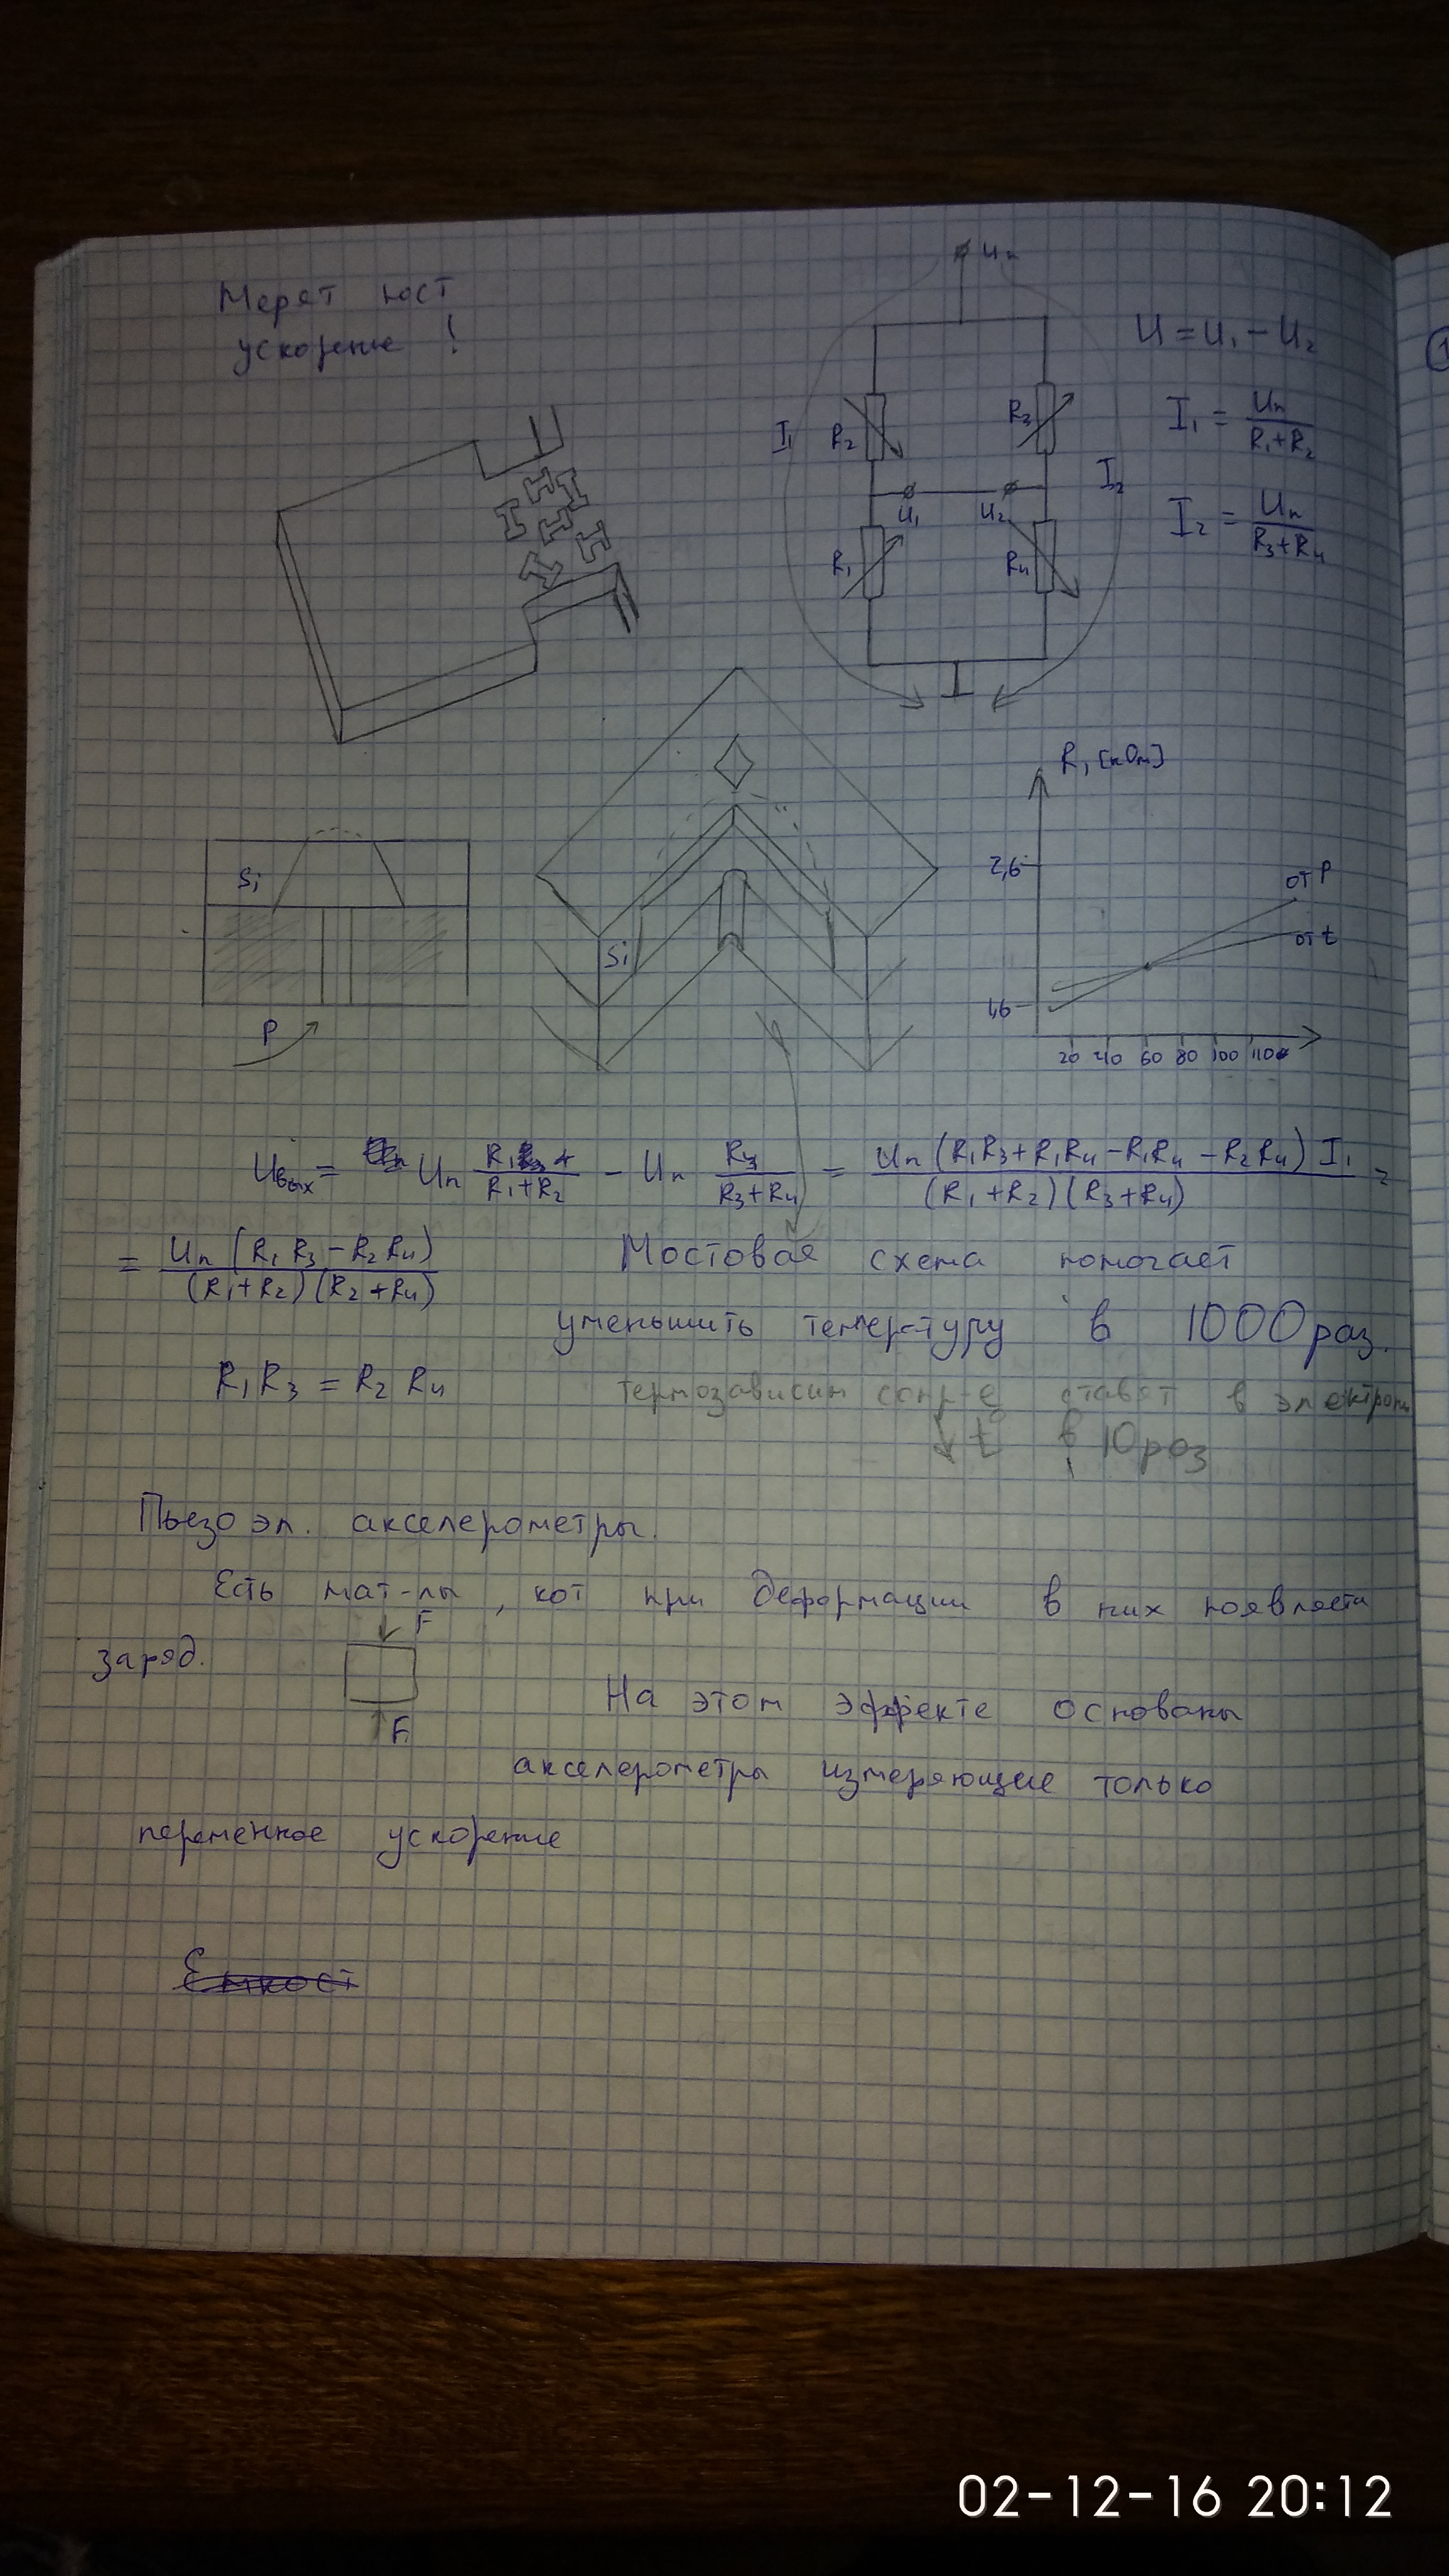 Мерят
ускорение !
Uп
U = U₁ - U₂
I₁ R₂ R₃
I₁ = Uп / (R₁+R₂)
I₂
U₁ U₂
I₂ = Uп / (R₃+R₄)
R₁ R₄
R, [кОм]
Si
2,6
от P
от t
Si
1,6
P
20 40 60 80 100 110
Uвых = Uп R₁ / (R₁+R₂) - Uп R₄ / (R₃+R₄) = Uп (R₁R₃+R₁R₄-R₁R₄-R₂R₄) I₁ / (R₁+R₂)(R₃+R₄) =
= Uп (R₁R₃-R₂R₄) / (R₁+R₂)(R₂+R₄) Мостовая схема помогает
уменьшить темер-туру в 1000 раз.
R₁R₃ = R₂R₄
термозависим сопр-е ставят в электрон
↓t° в 10 раз
Пьезо эл. акселерометры.
Есть мат-лы, кот при деформации в них появляется
F
заряд.
На этом эффекте основаны
F
акселерометры измеряющие только
переменное ускорение
Емкост
02-12-16 20:12